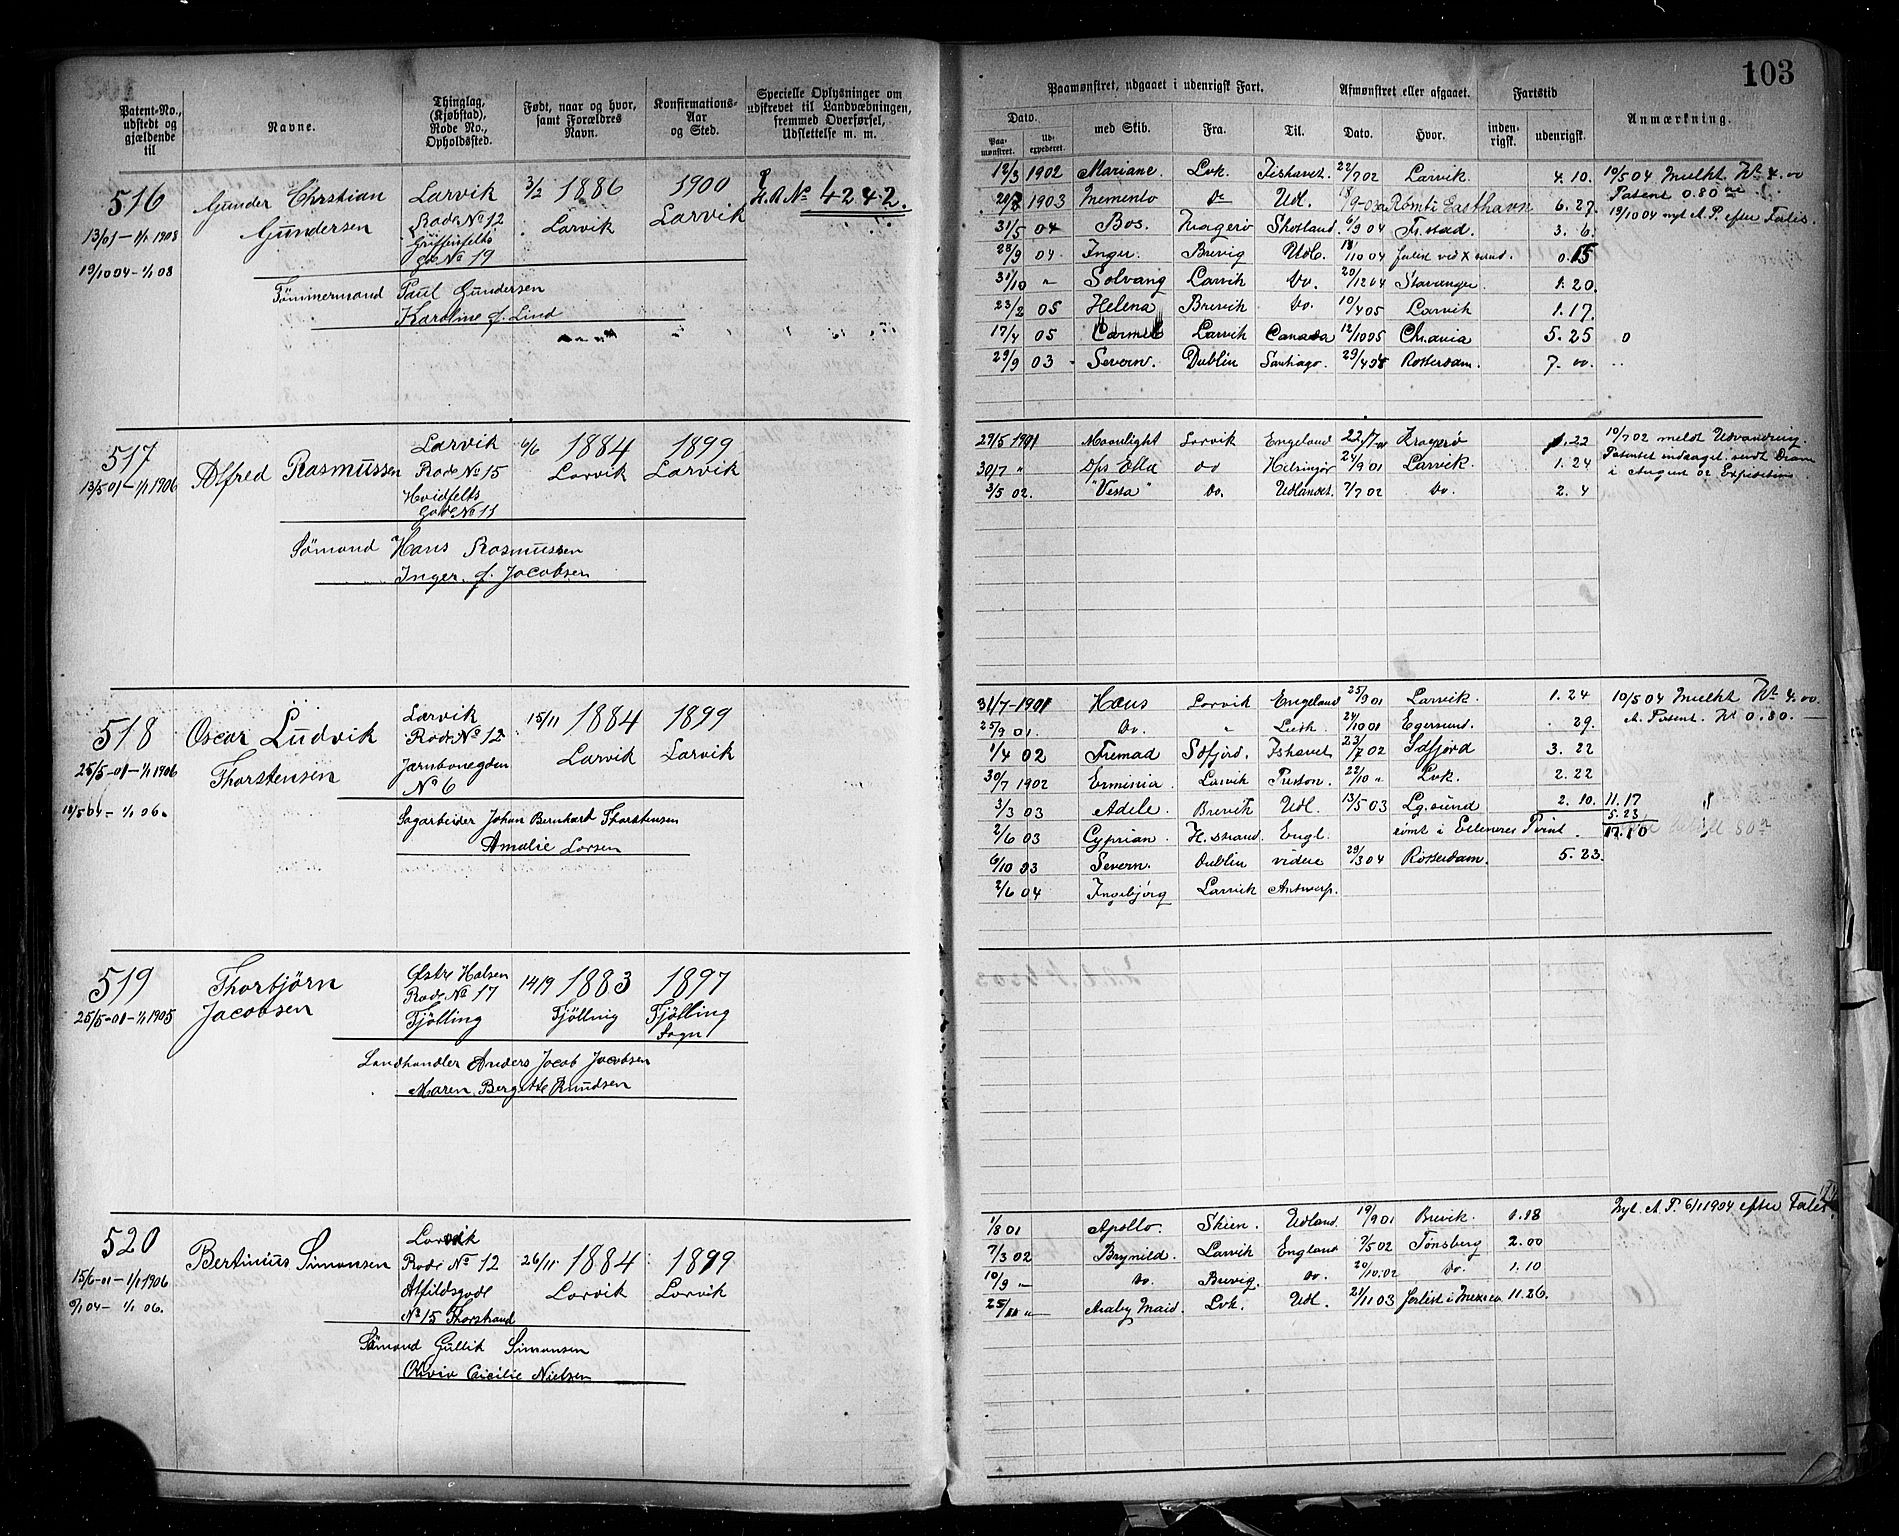 103
Patent-No., udstedt og gjældende til
Navne.
Thinglag, (Kjøbstad), Rode No., Opholdssted.
Født, naar og hvor, samt Forældres Navn.
Konfirmations-Aar og Sted.
Specielle Oplysninger om udskrevet til Landværn­ingen, fremmed Overførsel, Udslettelse m. m.
Paamønstret, udgaaet i udenrigsk Fart.
Afmønstret eller afgaaet.
Fartstid
Anmærkning.
Dato.
Paa-mønstret.
Ud-expederet.
med Skib.
Fra.
Til.
Dato.
Hvor.
inden-rigsk.
udenrigsk.
516
13/01 – 1/1 1908
19/10 04 – 1/1 08
Gunder Chrstian
Gundersen
Larvik
Rode No 12
Griffenfelts
Gd No 19
3/2 1886
Larvik
1900
Larvik
No 4242.
Tømmermand Paul Gundersen
Karoline f. Lind
12/3 1902 Mariane. Lvk. Fishavet. 22/7 02 Larvik. 4. 10.
1903 Memento Do Udl. Easthavn 6. 27.
31/5 04 Bos. Kragerø Shotland. 6/9 04 Fr.stad. 3. 6.
28/9 04. Inger. Brevig Udl. 18/10 04 forlist ved X sand. 0. 15
31/10 " Solvang Larvik Do. 20/12 04 Stavanger 1. 20.
23/2 05 Helena Brevik Do. 10/4 05 Larvik 1. 17.
17/4 05 Carmel Larvik Canada 12/10 05 Chr.ania 5. 25 0
29/9 03 Severn. Dublin Santiago. Rotterdam. 7. 00.
10/5 04 Mulkt Kr 4. 00
Patent 0.80
19/10 04 nyt A. P. efter Falis.
517
13/5 01 – 1/1 1906
Alfred Rasmussen
Larvik
Rode No 15
Hvidfelts
Gade No 11
6/6 1884
Larvik
1899
Larvik
Sømand Hans Rasmussen
Inger f. Jacobsen
29/5 1901 Moonlight Larvik Engeland 22/7 01 Kragerø 1. 22
30/7 " D/s Ella Do Helsingør 24/9 01 Larvik. 1. 24
3/5 02. "Vesta" Do. Udlandet. 7/7 02 Do. 2. 4
10/7 02 meldt Udvandring
Patentet inddraget sendt Dram
i August 02 Expedition
518
25/5 – 01 – 1/1 1906
1/1 06.
Oscar Ludvik
Thorstensen
Larvik
Rode No 12
Jernbanegden
No 6
15/11 1884
Larvik
1899
Larvik
Sagarbeider Johan Bernhard Thorstensen
Amalie Larsen
31/7 – 1901 Hans Larvik Engeland 25/9 01 Larvik. 1. 24
25/9 01. Do. " Leith 24/10 01 Egersund. 29.
1/4 02 Fremad Sdfjord. Ishavet 23/7 02 Sdfjord 3. 22
30/7 1902 Erminia Larvik Preston. 22/10 " Lvk. 2. 22
3/3 03 Adele. Brevik Udl. 13/5 03 Lg.sund 2. 10. 11.17
2/6 03 Cyprian. H.strand. Engl. rømt i Ellesmeres Point. 5.23
17.10
6/10 03 Severn. Dublin videre 29/3 04 Rotterdam. 5. 23.
2/6 04 Ingebjørg Larvik Antwerp.
10/5 04 Mulkt Kr 4. 00
A. Patent. Kr 0.80. —
519
25/5 – 01 – 1/1 1905
Thorbjörn
Jacobsen
Østre Halsen
Rode No 17
Tjölling
14/9 1883
Tjölling
1897
Tjölling
Sogn
Landhandler Anders Jacob Jacobsen
Maren Bergitte Knudsen
520
15/6 – 01 – 1/1 1906
1/1 06.
Bertinius Simonsen
Larvik
Rode No 12
Alfildsgade
No 15 Thorstrand
26/11 1884
Larvik
1899
Larvik
Sømand Gullik Simonsen
Olivia Cicilie Nielsen
1/8 01 Apollo. Skien. Udland. 19/9 01 Brevik. 1. 18
7/3 02 Brynild. Larvik England 7/5 02 Tønsberg 2. 00
10/9 " Do. Brevig. Do. 20/10. 02 Do. 1. 10
25/11 " Araby Maid. Lvk. Udl. 21/11 03 forlist i Mexico. 11. 26.
Nyt. A. P. 6/1 1904 efter Falis